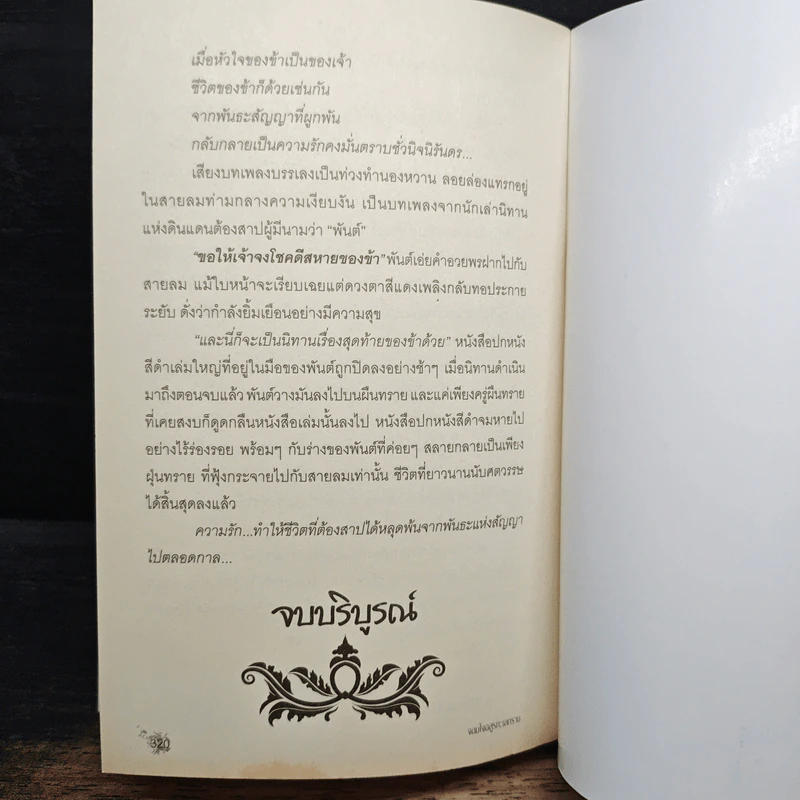 เมื่อหัวใจของข้าเป็นของเจ้า
ชีวิตของข้าก็ด้วยเช่นกัน
จากพันธะสัญญาที่ผูกพัน
กลับกลายเป็นความรักคงมั่นตราบชั่วนิจนิรันดร...
เสียงบทเพลงบรรเลงเป็นท่วงทำนองหวาน ลอยล่องแทรกอยู่
ในสายลมท่ามกลางความเงียบงัน เป็นบทเพลงจากนักเล่านิทาน
แห่งดินแดนต้องสาปผู้มีนามว่า “พันต์”
“ขอให้เจ้าจงโชคดีสหายของข้า” พันต์เอ่ยคำอวยพรฝากไปกับ
สายลม แม้ใบหน้าจะเรียบเฉยแต่ดวงตาสีแดงเพลิงกลับทอประกาย
ระยับ ดั่งว่ากำลังยิ้มเยือนอย่างมีความสุข
“และนี่ก็จะเป็นนิทานเรื่องสุดท้ายของข้าด้วย” หนังสือปกหนัง
สีดำเล่มใหญ่ที่อยู่ในมือของพันต์ถูกปิดลงอย่างช้าๆ เมื่อนิทานดำเนิน
มาถึงตอนจบแล้ว พันต์วางมันลงไปบนผืนทราย และแค่เพียงครู่ผืนทราย
ที่เคยสงบก็ดูดกลืนหนังสือเล่มนั้นลงไป หนังสือปกหนังสีดำจมหายไป
อย่างไร้ร่องรอย พร้อมๆ กับร่างของพันต์ที่ค่อยๆ สลายกลายเป็นเพียง
ฝุ่นทราย ที่ฟุ้งกระจายไปกับสายลมเท่านั้น ชีวิตที่ยาวนานนับศตวรรษ
ได้สิ้นสุดลงแล้ว
ความรัก...ทำให้ชีวิตที่ต้องสาปได้หลุดพ้นจากพันธะแห่งสัญญา
ไปตลอดกาล...
จบบริบูรณ์
320